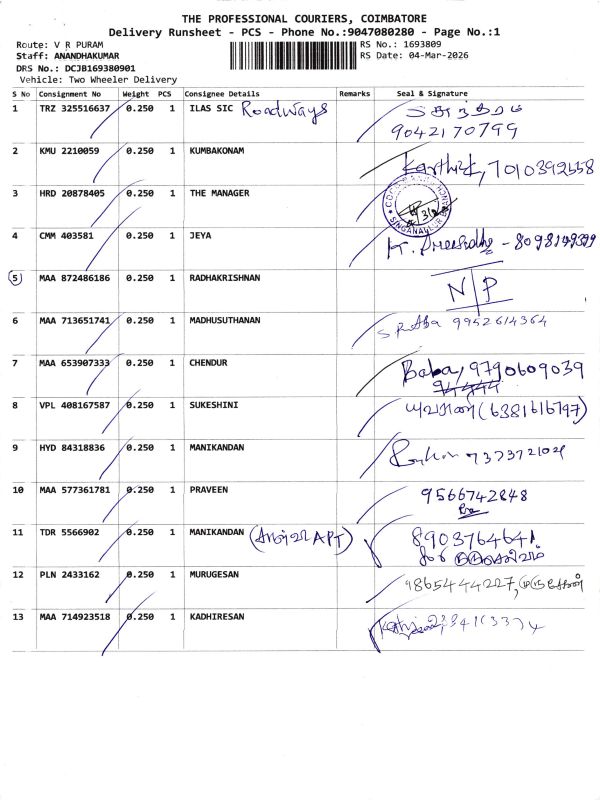 THE PROFESSIONAL COURIERS, COIMBATORE
Delivery Runsheet - PCS - Phone No.:9047080280 - Page No.:1
Route: V R PURAM
RS No.: 1693809
Staff: ANANDHAKUMAR
RS Date: 04-Mar-2026
DRS No.: DCJB169380901
Vehicle: Two Wheeler Delivery
S No Consignment No Weight PCS Consignee Details Remarks Seal & Signature
1 TRZ 325516637 0.250 1 ILAS SIC Roadways
9042170799
2 KMU 2210059 0.250 1 KUMBAKONAM Karthick, 7010392558
3 HRD 20878405 0.250 1 THE MANAGER
4 CMM 403581 0.250 1 JEYA
5 MAA 872486186 0.250 1 RADHAKRISHNAN N/P
6 MAA 713651741 0.250 1 MADHUSUTHANAN 9952614364
7 MAA 653907333 0.250 1 CHENDUR Baba, 9790609039
8 VPL 408167587 0.250 1 SUKESHINI (6381616797)
9 HYD 84318836 0.250 1 MANIKANDAN
10 MAA 577361781 0.250 1 PRAVEEN 9566742848
11 TDR 5566902 0.250 1 MANIKANDAN 8903764641
12 PLN 2433162 0.250 1 MURUGESAN 9865444227, முருகேசன்
13 MAA 714923518 0.250 1 KADHIRESAN